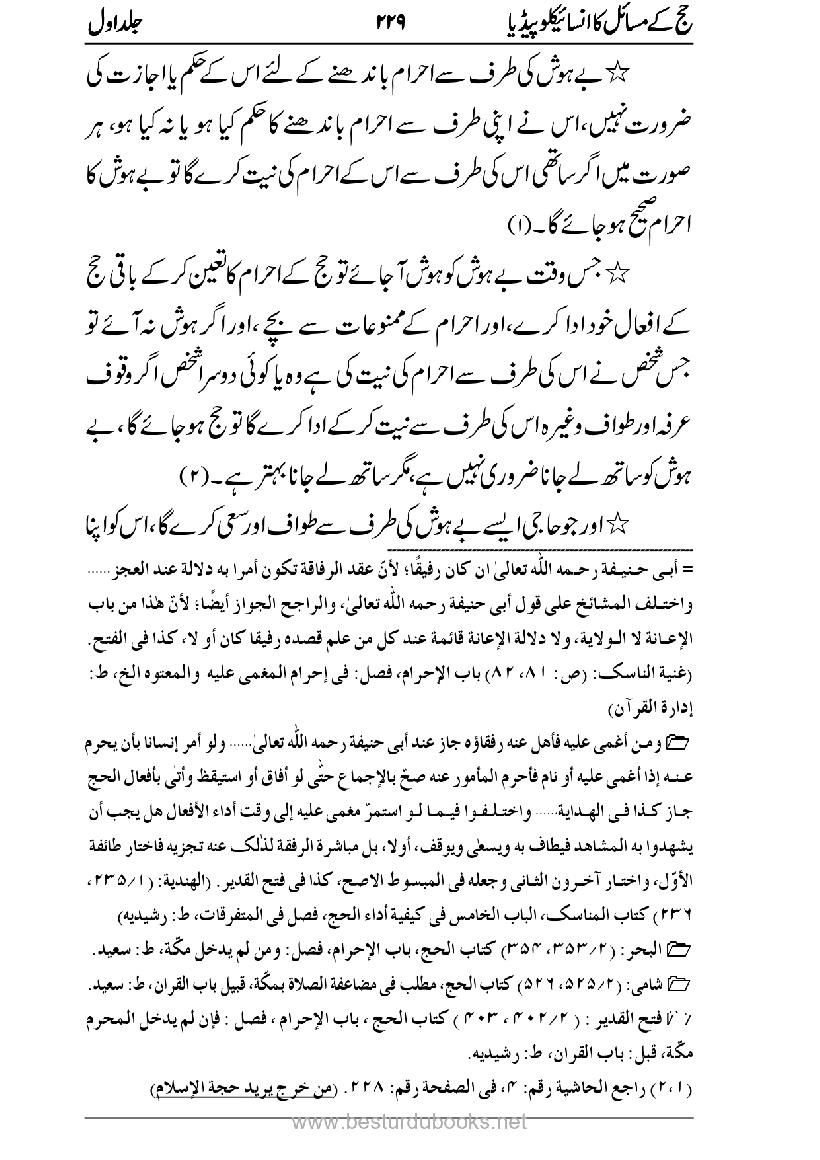 حج کے مسائل کا انسائیکلوپیڈیا ۲۲۹ جلد اول
☆ بے ہوش کی طرف سے احرام باندھنے کے لئے اس کے حکم یا اجازت کی
ضرورت نہیں، اس نے اپنی طرف سے احرام باندھنے کا حکم کیا ہو یا نہ کیا ہو، ہر
صورت میں اگر ساتھی اس کی طرف سے اس کے احرام کی نیت کرے گا تو بے ہوش کا
احرام صحیح ہو جائے گا۔ (۱)
☆ جس وقت بے ہوش کو ہوش آ جائے تو حج کے احرام کا تعین کر کے باقی حج
کے افعال خود ادا کرے، اور احرام کے ممنوعات سے بچے، اور اگر ہوش نہ آئے تو
جس شخص نے اس کی طرف سے احرام کی نیت کی ہے وہ یا کوئی دوسرا شخص اگر وقوف
عرفہ اور طواف وغیرہ اس کی طرف سے نیت کر کے ادا کرے گا تو حج ہو جائے گا، بے
ہوش کو ساتھ لے جانا ضروری نہیں ہے، مگر ساتھ لے جانا بہتر ہے۔ (۲)
☆ اور جو حاجی ایسے بے ہوش کی طرف سے طواف اور سعی کرے گا، اس کو اپنا
= أبی حنیفة رحمه الله تعالیٰ ان کان رفیقًا؛ لأنّ عقد الرفاقة تکون أمرا به دلالة عند العجز ......
واختلف المشائخ علی قول أبی حنیفة رحمه الله تعالیٰ، والراجح الجواز أیضًا؛ لأنّ هٰذا من باب
الإعانة لا الولایة، ولا دلالة الإعانة قائمة عند کل من علم قصده رفیقا کان أو لا، کذا فی الفتح.
(غنیة الناسک: (ص: ۸۱، ۸۲) باب الإحرام، فصل: فی إحرام المغمی علیه والمعتوه الخ، ط:
إدارة القرآن)
ومن أغمی علیه فأهل عنه رفقاؤه جاز عند أبی حنیفة رحمه الله تعالیٰ ...... ولو أمر إنسانا بأن یحرم
عنه إذا أغمی علیه أو نام فأحرم المأمور عنه صحّ بالإجماع حتّٰی لو أفاق أو استیقظ وأتٰی بأفعال الحج
جاز کذا فی الهدایة ...... واختلفوا فیما لو استمرّ مغمی علیه إلی وقت أداء الأفعال هل یجب أن
یشهدوا به المشاهد فیطاف به ویسعٰی ویوقف، أولا، بل مباشرة الرفقة لذٰلک عنه تجزیه فاختار طائفة
الأوّل، واختار آخرون الثانی وجعله فی المبسوط الاصح، کذا فی فتح القدیر. (الهندیة: (۱/۲۳۵،
۲۳۶) کتاب المناسک، الباب الخامس فی کیفیة أداء الحج، فصل فی المتفرقات، ط: رشیدیه)
البحر: (۲/۳۵۳، ۳۵۴) کتاب الحج، باب الإحرام، فصل: ومن لم یدخل مکّة، ط: سعید.
شامی: (۲/۵۲۵، ۵۲۶) کتاب الحج، مطلب فی مضاعفة الصلاة بمکّة، قبیل باب القران، ط: سعید.
فتح القدیر: (۲/۴۰۲، ۴۰۳) کتاب الحج، باب الإحرام، فصل: فإن لم یدخل المحرم
مکّة، قبل: باب القران، ط: رشیدیه.
(۱،۲) راجع الحاشیة رقم: ۴، فی الصفحة رقم: ۲۲۸. (من خرج یرید حجة الإسلام)
www.besturdubooks.net